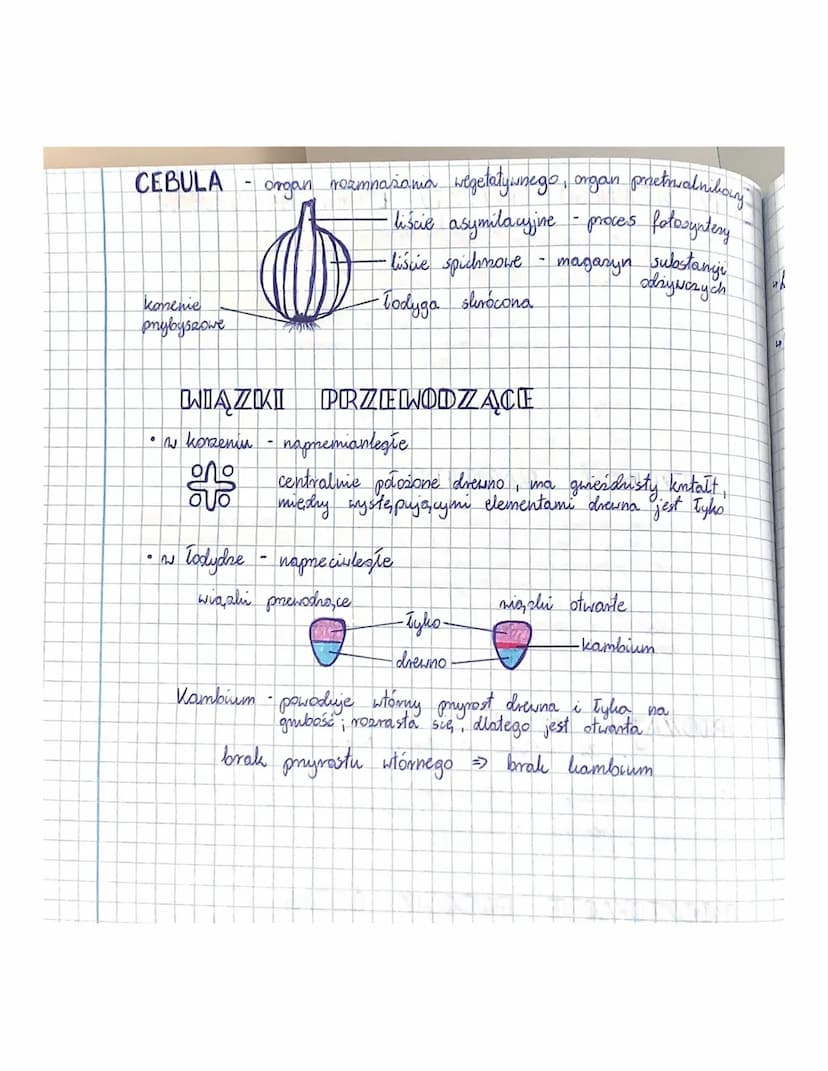 CEBULA - organ rozmnażania wegetatywnego, organ przetrwalnikowy
liście asymilacyjne - proces fotosyntezy
liście spichrzowe - magazyn substancji
odżywczych
korzenie
przybyszowe
łodyga skrócona
WIĄZKI PRZEWODZĄCE
• w korzeniu - naprzemianległe
centralnie położone drewno, ma gwieździsty kształt,
między występującymi elementami drewna jest łyko
• w łodydze - naprzeciwległe
wiązki przewodzące
wiązki otwarte
łyko
kambium
drewno
Kambium - powoduje wtórny przyrost drewna i łyka na
grubość; rozrasta się, dlatego jest otwarta
brak przyrostu wtórnego => brak kambium